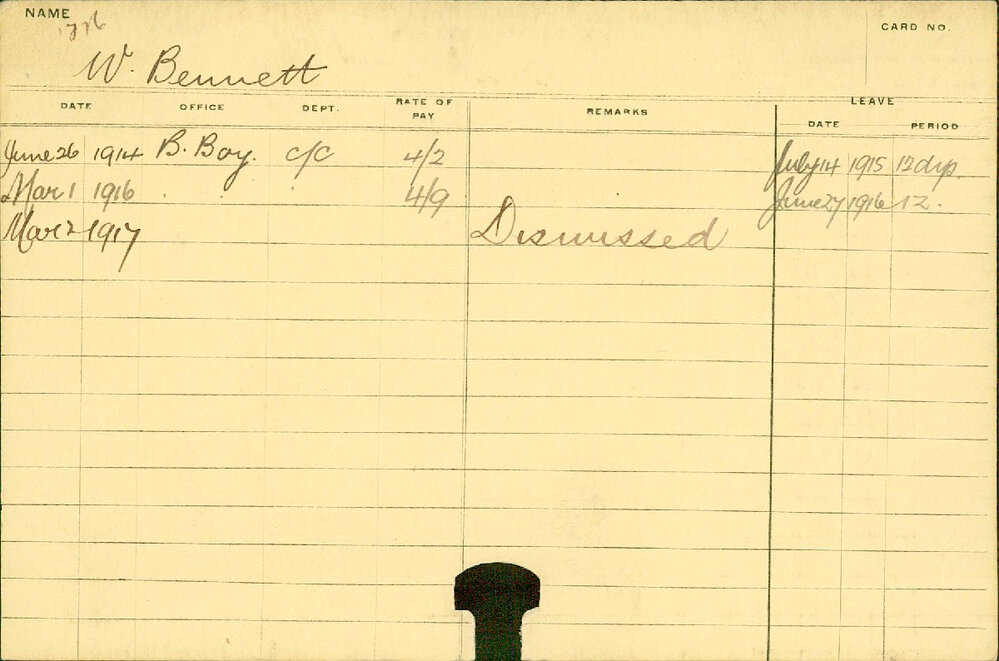 NAME
CARD NO.
W. Bennett
DATE OFFICE DEPT. RATE OF PAY REMARKS LEAVE
DATE PERIOD
June 26 1914 B. Boy. c/c 4/2 July 14 1915 12 dys.
Mar 1 1916 . . 4/9 June 27 1916 12.
Mar 2 1917 Dismissed